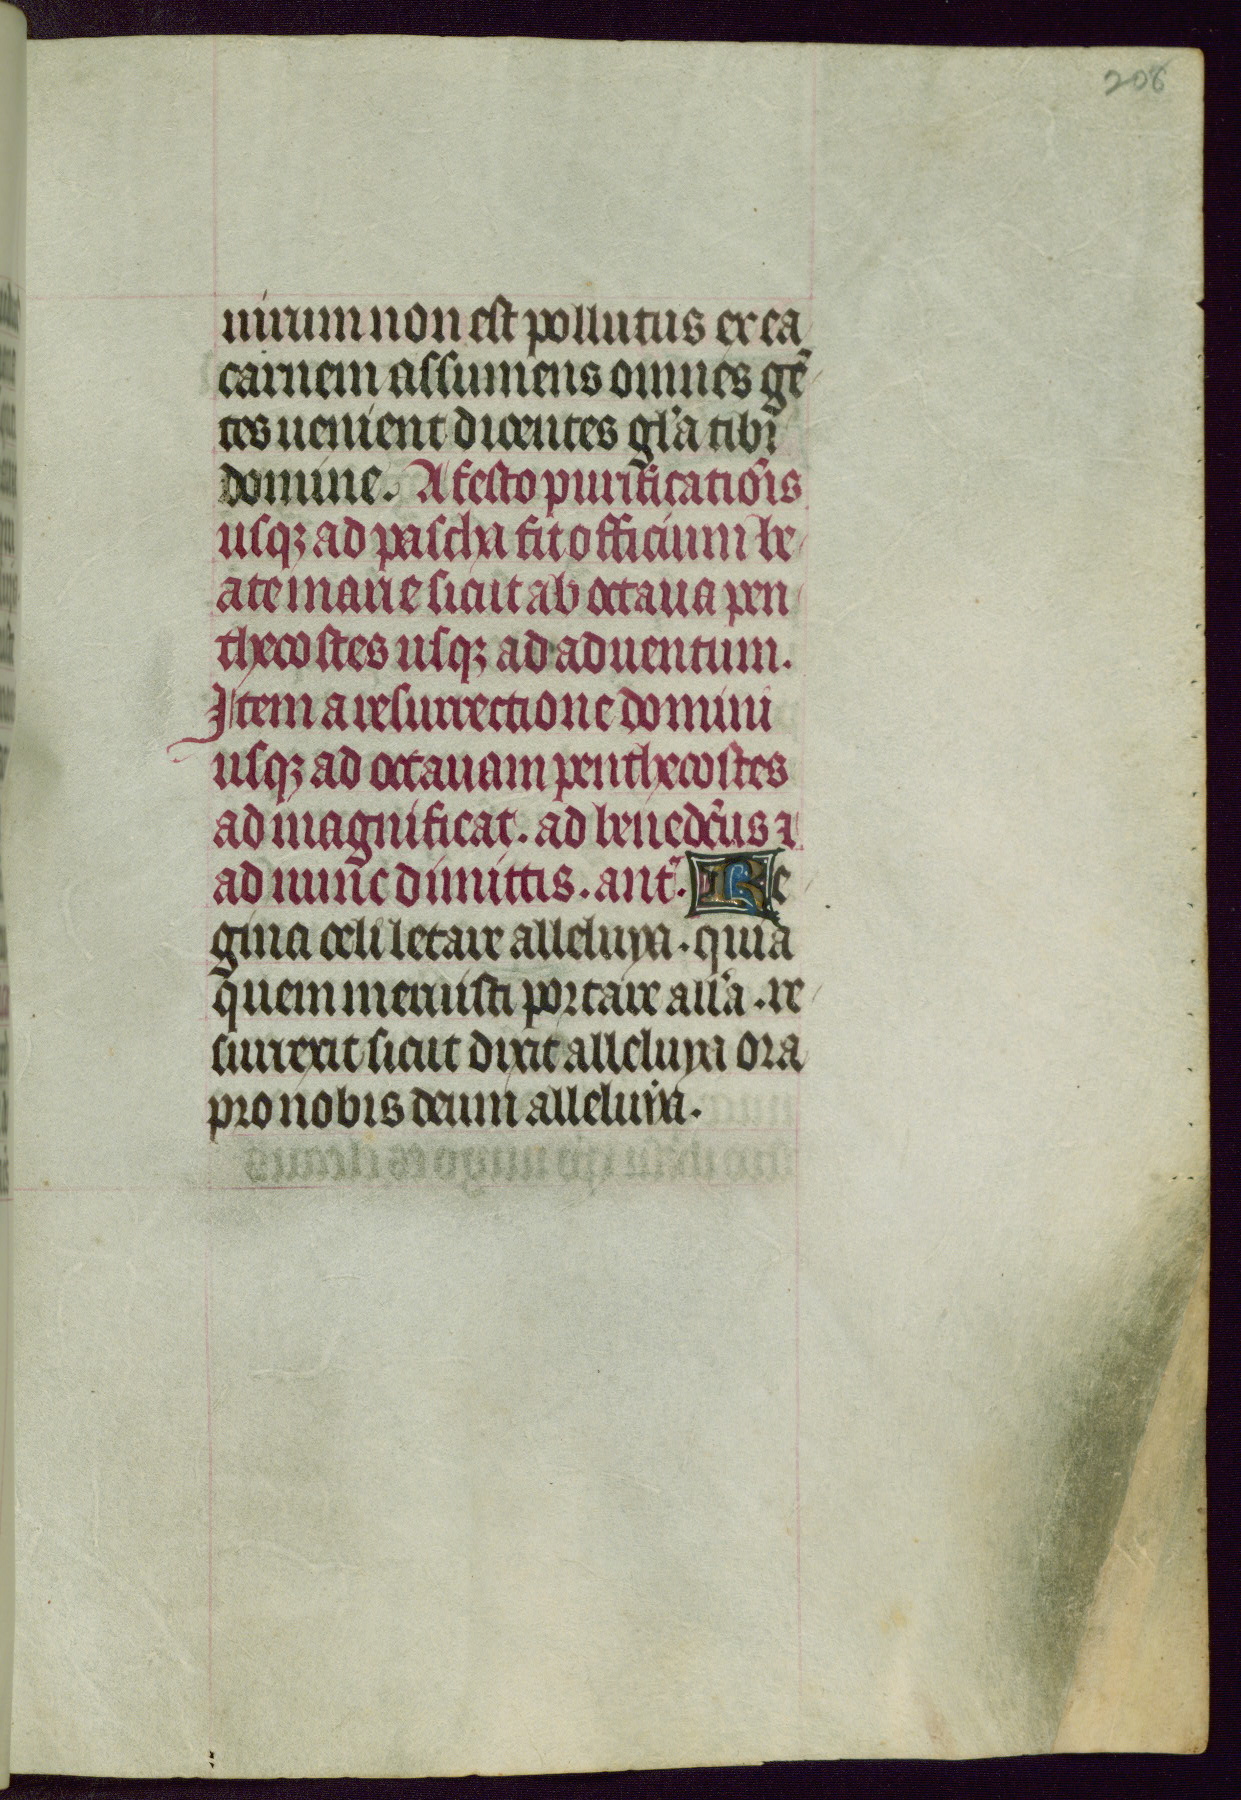 208
uirum non est pollutus ex ea
carnem assumens omnes gē
tes uenient dicentes gl'a tibi
domine. A festo purificatiōis
usqꝫ ad pascha fit officium be
ate marie sicut ab octaua pen
thecostes usqꝫ ad aduentum.
Item a resurrectione domini
usqꝫ ad octauam penthecostes
ad magnificat. ad benedc̄us ⁊
ad nunc dimittis. ant̄. Re
gina celi letare alleluya. quia
quem meruisti portare all'a. re
surrexit sicut dixit alleluya ora
pro nobis deum alleluya.